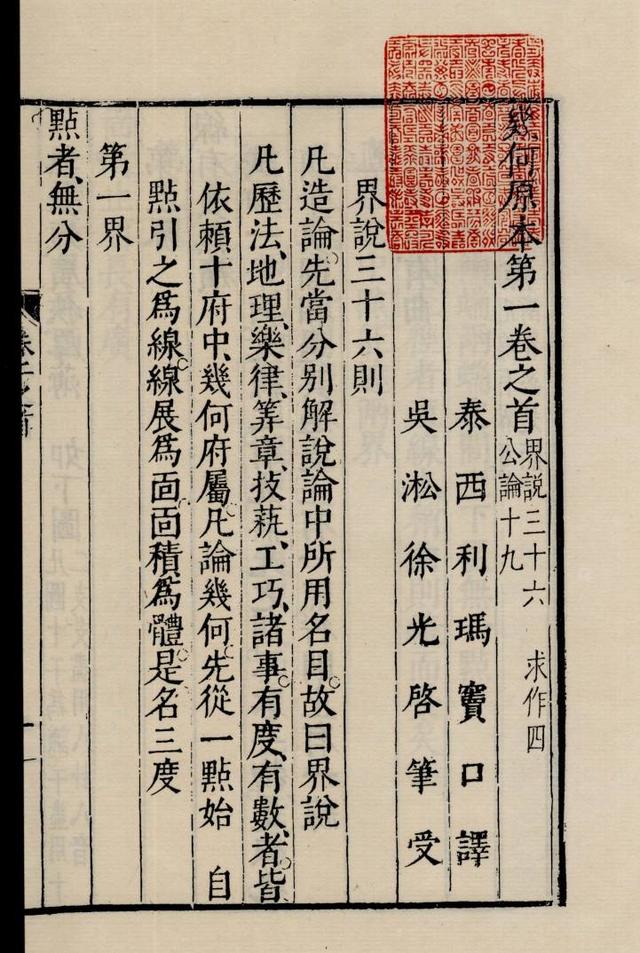 幾何原本第一卷之首 界說三十六 公論十九 求作四
泰西利瑪竇口譯
吳淞徐光啓筆受
界說三十六則
凡造論。先當分別解說論中所用名目。故曰界說
凡歷法、地理、樂律、筭章、技藝、工巧、諸事。有度、有數、者。皆
依賴。十府中。幾何府屬。凡論幾何。先從一點始 自
點引之爲線。線展爲面。面積爲體。是名三度
第一界
點者、無分